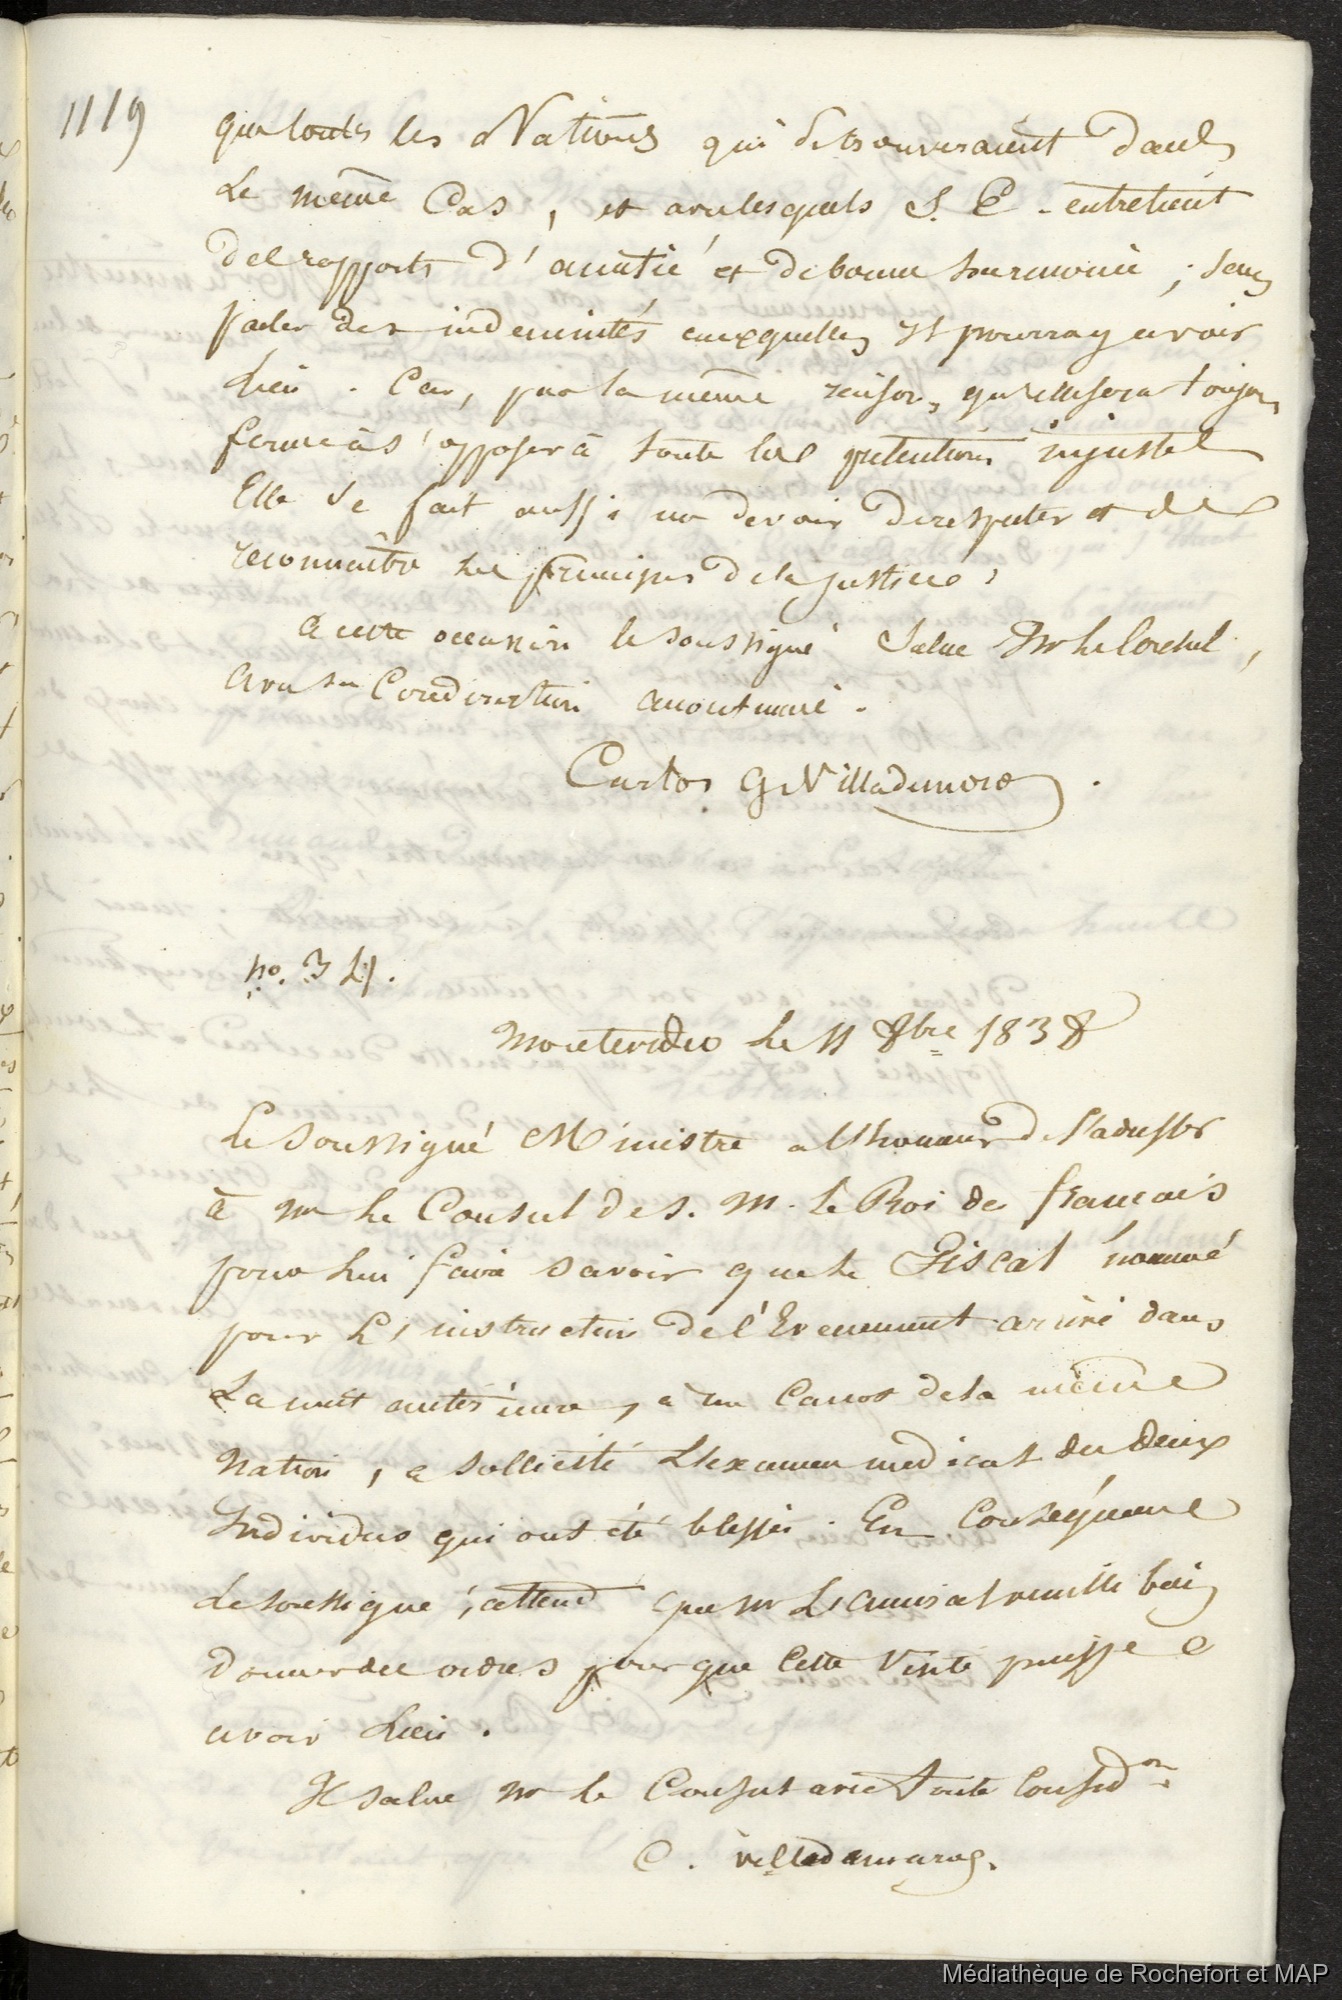 1119
que toutes les Nations qui se trouveraient dans
Le même Cas, et avec lesquels S. E. entretient
des rapports d'amitié et de bonne harmonie ; sans
parler des indemnités auxquelles Il pourra y avoir
Lieu. Car, par la même raison, qu'elle sera toujours
ferme à s'opposer à toute les prétentions injustes
Elle se fait aussi un devoir de respecter et de
reconnaître les principes de la justice,
à cette occasion le soussigné Salue Mr le Consul,
avec sa Considération accoutumée.
Carlos G. Villademoro.
no. 34.
Montevideo Le 11 8bre 1838
Le Soussigné Ministre a l'honneur de S'adresser
à Mr Le Consul de S. M. Le Roi de français
pour Lui faire savoir que le Fiscal nommé
pour L'instruction de l'Evenement arrivé dans
La nuit antérieure, à un Canot de la même
Nation, a sollicité L'examen medical des deux
Individus qui ont été blessés. En Conséquence
Le soussigné, attend que Mr L'amiral veuille bien
Donner des ordres pour que Cette Visite puisse
avoir Lieu.
Il salue Mr le Consul avec toute Considon
C. villademoros.
Médiathèque de Rochefort et MAP